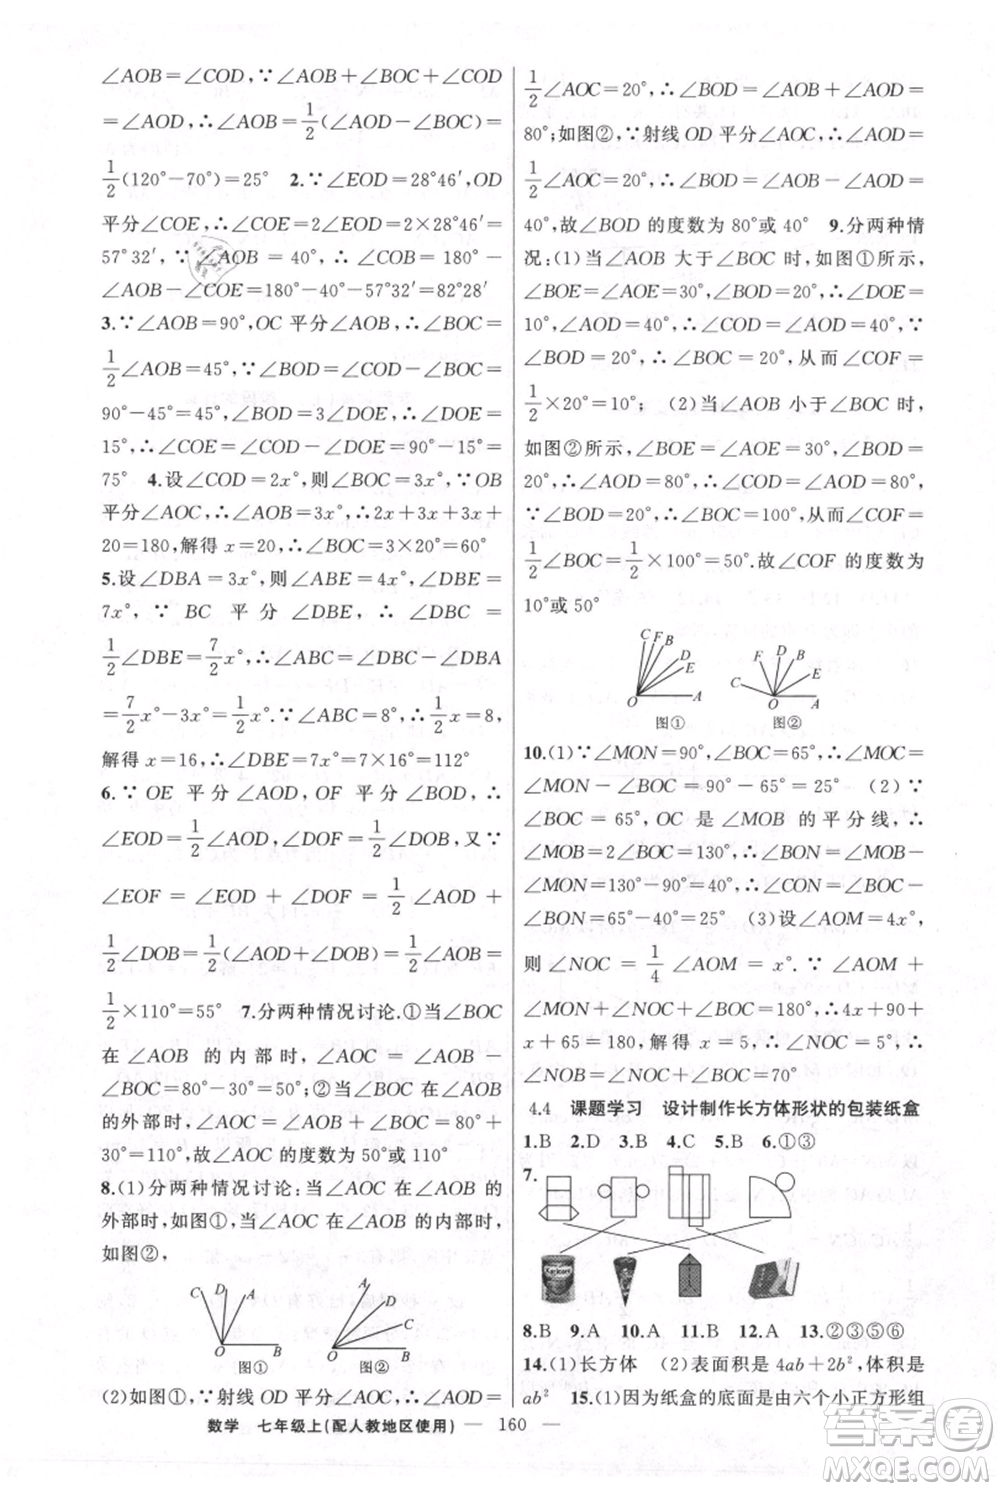 ∠AOB=∠COD,∵∠AOB+∠BOC+∠COD
=∠AOD,∴∠AOB=1/2(∠AOD-∠BOC)=
1/2(120°-70°)=25° 2.∵∠EOD=28°46′,OD
平分∠COE,∴∠COE=2∠EOD=2×28°46′=
57°32′,∵∠AOB=40°,∴∠COD=180°-
∠AOB-∠COE=180°-40°-57°32′=82°28′
3.∵∠AOB=90°,OC平分∠AOB,∴∠BOC=
1/2∠AOB=45°,∵∠BOD=∠COD-∠BOC=
90°-45°=45°,∠BOD=3∠DOE,∴∠DOE=
15°,∴∠COE=∠COD-∠DOE=90°-15°=
75° 4.设∠COD=2x°,则∠BOC=3x°.∵OB
平分∠AOC,∴∠AOB=3x°,∴2x+3x+3x+
20=180,解得x=20,∴∠BOC=3×20°=60°
5.设∠DBA=3x°,则∠ABE=4x°,∴∠DBE=
7x°,∵BC平分∠DBE,∴∠DBC=
1/2∠DBE=7/2x°,∴∠ABC=∠DBC-∠DBA
=7/2x°-3x°=1/2x°.∵∠ABC=8°,∴1/2x=8,
解得x=16,∴∠DBE=7x°=7×16°=112°
6.∵OE平分∠AOD,OF平分∠BOD,∴
∠EOD=1/2∠AOD,∠DOF=1/2∠DOB,又∵
∠EOF=∠EOD+∠DOF=1/2∠AOD+
1/2∠DOB=1/2(∠AOD+∠DOB)=1/2∠AOB=
1/2×110°=55° 7.分两种情况讨论.①当∠BOC
在∠AOB的内部时,∠AOC=∠AOB-
∠BOC=80°-30°=50°;②当∠BOC在∠AOB
的外部时,∠AOC=∠AOB+∠BOC=80°+
30°=110°,故∠AOC的度数为50°或110°
8.(1)分两种情况讨论:当∠AOC在∠AOB的
外部时,如图①,当∠AOC在∠AOB的内部时,
如图②,
C D B O A 图①
A D C O B 图②
(2)如图①,∵射线OD平分∠AOC,∴∠AOD=
1/2∠AOC=20°,∴∠BOD=∠AOD+∠AOB=
80°;如图②,∵射线OD平分∠AOC,∴∠AOD=
1/2∠AOC=20°,∴∠BOD=∠AOB-∠AOD=
40°,故∠BOD的度数为80°或40° 9.分两种情
况:(1)当∠AOB大于∠BOC时,如图①所示,
∠BOE=∠AOE=30°,∠DOE=∠BOE-∠BOD=
10°,∠AOD=40°,∴∠COD=∠AOD=40°,∵
∠BOD=20°,∴∠BOC=20°,从而∠COF=
1/2×20°=10°; (2)当∠AOB小于∠BOC时,
如图②所示,∠BOE=∠AOE=30°,∠BOD=
20°,∴∠AOD=80°,∴∠COD=∠AOD=80°,
∵∠BOD=20°,∴∠BOC=100°,从而∠COF=
1/2∠BOC=1/2×100°=50°.故∠COF的度数为
10°或50°
C F B D E O A 图①
C F D B E O A 图②
10.(1)∵∠MON=90°,∠BOC=65°,∴∠MOC=
∠MON-∠BOC=90°-65°=25° (2)∵
∠BOC=65°,OC是∠MOB的平分线,∴
∠MOB=2∠BOC=130°,∴∠BON=∠MOB-
∠MON=130°-90°=40°,∴∠CON=∠BOC-
∠BON=65°-40°=25° (3)设∠AOM=4x°,
则∠NOC=1/4∠AOM=x°.∵∠AOM+
∠MON+∠NOC+∠BOC=180°,∴4x+90+
x+65=180,解得x=5,∴∠NOC=5°,∴
∠NOB=∠NOC+∠BOC=70°
4.4 课题学习 设计制作长方体形状的包装纸盒
1.B 2.D 3.B 4.C 5.B 6.①③
7.
8.B 9.A 10.A 11.B 12.A 13.②③⑤⑥
14.(1)长方体 (2)表面积是4ab+2b²,体积是
ab² 15.(1)因为纸盒的底面是由六个小正方形组
数学 七年级上(配人教地区使用) — 160 —
答案圈
MXQE.COM